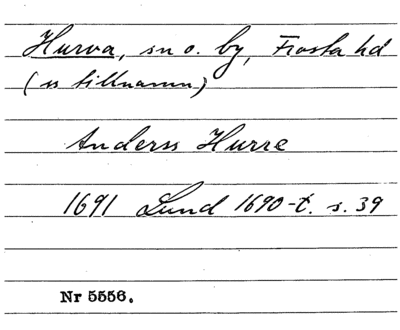 Hurva, sn o. by, Frosta hd
(ss tillnamn)
Anderss Hurre
1691 Lund 1690-t. s. 39
Nr 5556.